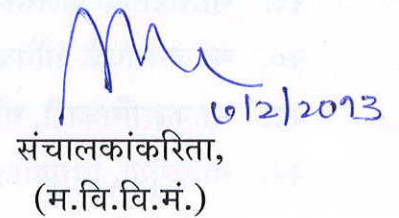 ७/2/2013
संचालकांकरिता,
(म.वि.वि.मं.)